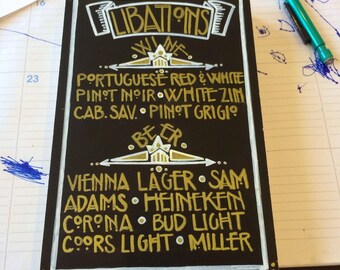 LIBATIONS
WINE
PORTUGUESE RED & WHITE
PINOT NOIR • WHITE ZIN
CAB. SAV. • PINOT GRIGIO
BEER
VIENNA LAGER • SAM
ADAMS • HEINEKEN
CORONA • BUD LIGHT
COORS LIGHT • MILLER
23